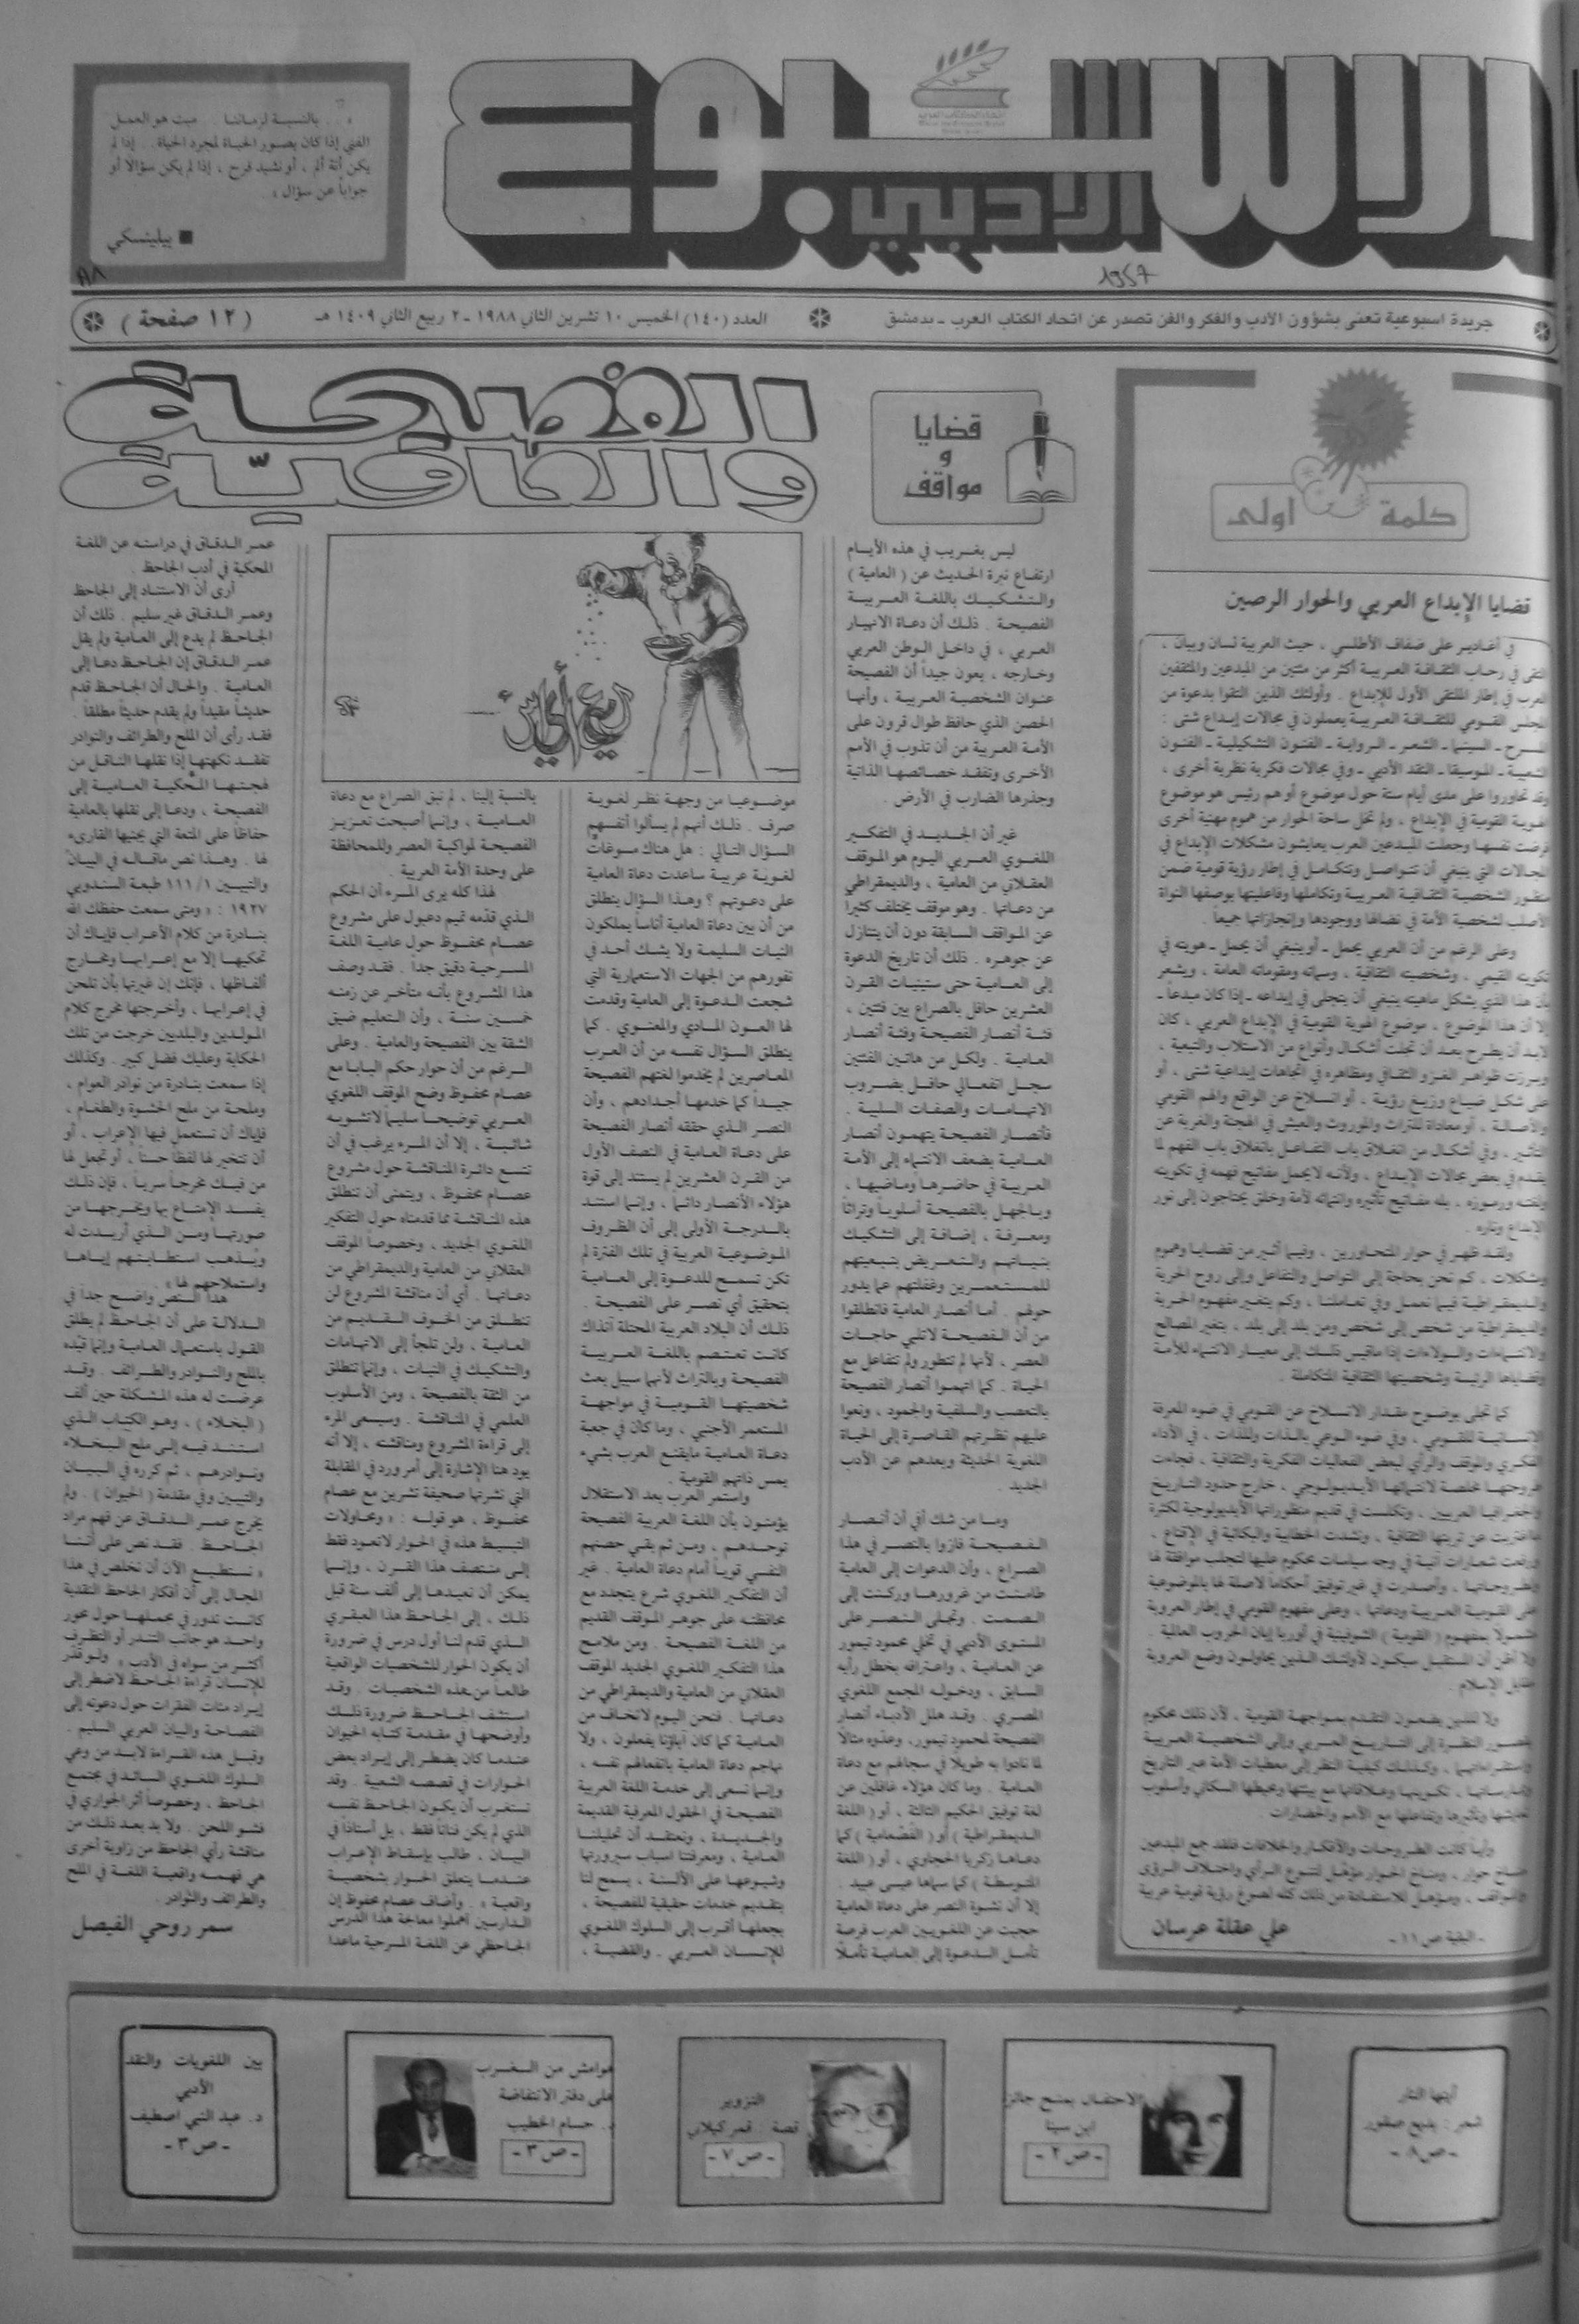 الأسبوع
الأدبي
« . . بالنسبة لزماننا . . ميت هو العمل
الفني إذا كان يصور الحياة لمجرد الحياة . . إذا لم
يكن أنة ألم ، أو نشيد فرح ، إذا لم يكن سؤالاً أو
جواباً عن سؤال » .
■ بيلينسكي
جريدة اسبوعية تعنى بشؤون الادب والفكر والفن تصدر عن اتحاد الكتاب العرب ـ بدمشق
العدد (١٤٠) الخميس ١٠ تشرين الثاني ١٩٨٨ ـ ٢ ربيع الثاني ١٤٠٩ هـ
( ١٢ صفحة )
كلمة اولى
قضايا الإبداع العربي والحوار الرصين
في أغادير على ضفاف الأطلسي ، حيث العربية لسان وبيان ،
التقى في رحاب الثقافة العربية أكثر من مئتين من المبدعين والمثقفين
العرب في إطار الملتقى الأول للإبداع . وأولئك الذين التقوا بدعوة من
المجلس القومي للثقافة العربية يعملون في مجالات إبداع شتى :
المسرح ـ السينما ـ الشعر ـ الرواية ـ الفنون التشكيلية ـ الفنون
الشعبية ـ الموسيقا ـ النقد الأدبي ـ وفي مجالات فكرية نظرية أخرى ،
وقد تحاوروا على مدى أيام ستة حول موضوع أو هم رئيس هو موضوع
الهوية القومية في الإبداع ، ولم تخل ساحة الحوار من هموم مهنية أخرى
فرضت نفسها وجعلت المبدعين العرب يعايشون مشكلات الإبداع في
المجالات التي ينبغي أن تتواصل وتتكامل في إطار رؤية قومية ضمن
منظور الشخصية الثقافية العربية وتكاملها وفاعليتها بوصفها النواة
الأصلب لشخصية الأمة في نضالها ووجودها وإنجازاتها جميعاً .
وعلى الرغم من أن العربي يحمل ـ أو ينبغي أن يحمل ـ هويته في
تكوينه القيمي ، وشخصيته الثقافية ، وسماته ومقوماته العامة ، ويشعر
بأن هذا الذي يشكل ماهيته ينبغي أن يتجلى في إبداعه ـ إذا كان مبدعاً ـ
إلا أن هذا الموضوع ، موضوع الهوية القومية في الإبداع العربي ، كان
لابد أن يطرح بعد أن تجلت أشكال وأنواع من الاستلاب والتبعية ،
وبرزت ظواهر الغزو الثقافي ومظاهره في اتجاهات إبداعية شتى ، أو
على شكل ضياع وزيغ رؤية ، أو انسلاخ عن الواقع والهم القومي
والأصالة ، أو معاداة للتراث والموروث والعيش في الهجنة والغربة عن
التأثير ، وفي أشكال من انغلاق باب التفاعل بانغلاق باب الفهم لما
يقدم في بعض مجالات الإبداع ، ولأنه لايحمل مفاتيح فهمه في تكوينه
ولغته ورموزه . بله مفاتيح تأثيره وانتمائه لأمة وخلق يحتاجون إلى نور
الإبداع وناره .
ولقد ظهر في حوار المتحاورين ، وفيما أثير من قضايا وهموم
ومشكلات ، كم نحن بحاجة إلى التواصل والتفاعل وإلى روح الحرية
والديمقراطية فيما نعمل وفي تعاملنا ، وكم يتغير مفهوم الحرية
والديمقراطية من شخص إلى شخص ومن بلد إلى بلد ، بتغير المصالح
والانتماءات والولاءات إذا ماقيس ذلك إلى معيار الانتماء للأمة
وقضاياها الرئيسة وشخصيتها الثقافية المتكاملة .
كما تجلى بوضوح مقدار الانسلاخ عن القومي في ضوء المعرفة
الإنسانية للقومي ، وفي ضوء الوعي بالذات وللذات ، في الأداء
الفكري والموقف والرأي لبعض الفعاليات الفكرية والثقافية ، فجاءت
خارج حدود التاريخ
على القومية العربية ودعاتها ، وعلى مفهوم القومي في إطار العروبة
شمولاً بمفهوم ( القومية ) الشوفينية في أوربا إبان الحروب العالمية .
ولا أظن أن المستقبل سيكون لأولئك الذين يحاولون وضع العروبة
مقابل الإسلام .
ولا للذين يضعون التقدم بمواجهة القومية ، لأن ذلك محكوم
بقصور النظرة إلى التاريخ العربي وإلى الشخصية العربية
وأياً كانت الطروحات والأفكار والخلافات فلقد جمع المبدعين
مناخ حوار ، ومناخ الحوار مؤهل لتنوع الرأي واختلاف الرؤى
والمواقف ، ومؤهل للاستفادة من ذلك كله لصوغ رؤية قومية عربية
ـ البقية ص ١١ ـ
علي عقلة عرسان
قضايا
و
مواقف
الفصيحة
والعاميّة
ليس بغريب في هذه الأيام
ارتفاع نبرة الحديث عن ( العامية )
والتشكيك باللغة العربية
الفصيحة . ذلك أن دعاة الانهيار
العربي ، في داخل الوطن العربي
وخارجه ، يعون جيداً أن الفصيحة
عنوان الشخصية العربية ، وأنها
الحصن الذي حافظ طوال قرون على
الأمة العربية من أن تذوب في الأمم
الأخرى وتفقد خصائصها الذاتية
وجذرها الضارب في الأرض .
غير أن الجديد في التفكير
اللغوي العربي اليوم هو الموقف
العقلاني من العامية ، والديمقراطي
من دعاتها . وهو موقف يختلف كثيراً
عن المواقف السابقة دون أن يتنازل
عن جوهره . ذلك أن تاريخ الدعوة
إلى العامية حتى ستينيات القرن
العشرين حافل بالصراع بين فئتين ،
فئة أنصار الفصيحة وفئة أنصار
العامية . ولكل من هاتين الفئتين
سجل انفعالي حافل بضروب
الاتهامات والصفات السلبية .
فأنصار الفصيحة يتهمون أنصار
العامية بضعف الانتماء إلى الأمة
العربية في حاضرها وماضيها ،
وبالجهل بالفصيحة أسلوباً وتراثاً
ومعرفة ، إضافة إلى التشكيك
بنياتهم والتعريض بتبعيتهم
للمستعمرين وغفلتهم عما يدور
حولهم . أما أنصار العامية فانطلقوا
من أن الفصيحة لاتلبي حاجات
العصر ، لأنها لم تتطور ولم تتفاعل مع
الحياة . كما اتهموا أنصار الفصيحة
بالتعصب والسلفية والجمود ، ونعوا
عليهم نظرتهم القاصرة إلى الحياة
اللغوية الحديثة وبعدهم عن الأدب
الجديد .
وما من شك في أن أنصار
الفصيحة فازوا بالنصر في هذا
الصراع ، وأن الدعوات إلى العامية
طامنت من غرورها وركنت إلى
الصمت . وتجلى النصر على
المستوى الأدبي في تخلي محمود تيمور
عن العامية ، واعترافه بخطل رأيه
السابق ، ودخوله المجمع اللغوي
المصري . وقد هلل الأدباء أنصار
الفصيحة لمحمود تيمور، وعدّوه مثالاً
لما نادوا به طويلاً في سجالهم مع دعاة
العامية . وما كان هؤلاء غافلين عن
لغة توفيق الحكيم الثالثة ، أو ( اللغة
الديمقراطية ) أو ( الفصعامية ) كما
دعاها زكريا الحجاوي ، أو ( اللغة
المتوسطة ) كما سماها عيسى عبيد .
إلا أن نشوة النصر على دعاة العامية
حجبت عن اللغويين العرب فرصة
تأمل الدعوة إلى العامية تأملاً
موضوعياً من وجهة نظر لغوية
صرف . ذلك أنهم لم يسألوا أنفسهم
السؤال التالي : هل هناك مسوغات
لغوية عربية ساعدت دعاة العامية
على دعوتهم ؟ وهذا السؤال ينطلق
من أن بين دعاة العامية أناساً يملكون
النيات السليمة ولا يشك أحد في
نفورهم من الجهات الاستعمارية التي
شجعت الدعوة إلى العامية وقدمت
لها العون المادي والمعنوي . كما
ينطلق السؤال نفسه من أن العرب
المعاصرين لم يخدموا لغتهم الفصيحة
جيداً كما خدمها أجدادهم ، وأن
النصر الذي حققه أنصار الفصيحة
على دعاة العامية في النصف الأول
من القرن العشرين لم يستند إلى قوة
هؤلاء الأنصار دائماً ، وإنما استند
بالدرجة الأولى إلى أن الظروف
الموضوعية العربية في تلك الفترة لم
تكن تسمح للدعوة إلى العامية
بتحقيق أي نصر على الفصيحة .
ذلك أن البلاد العربية المحتلة آنذاك
كانت تعتصم باللغة العربية
الفصيحة وبالتراث لأنهما سبيل بعث
شخصيتها القومية في مواجهة
المستعمر الأجنبي ، وما كان في جعبة
دعاة العامية مايقنع العرب بشيء
يمس ذاتهم القومية .
واستمر العرب بعد الاستقلال
يؤمنون بأن اللغة العربية الفصيحة
توحدهم ، ومن ثم بقي حصنهم
النفسي قوياً أمام دعاة العامية . غير
أن التفكير اللغوي شرع يتجدد مع
محافظته على جوهر الموقف القديم
من اللغة الفصيحة . ومن ملامح
هذا التفكير اللغوي الجديد الموقف
العقلاني من العامية والديمقراطي من
دعاتها . فنحن اليوم لانخاف من
العامية كما كان آباؤنا يفعلون ، ولا
نهاجم دعاة العامية بانفعالهم نفسه ،
وإنما نسعى إلى خدمة اللغة العربية
الفصيحة في الحقول المعرفية القديمة
والجديدة ، ونعتقد أن تحليلنا
العامية ، ومعرفتنا أسباب سيرورتها
وشيوعها على الألسنة ، يسمح لنا
بتقديم خدمات حقيقية للفصيحة ،
يجعلها أقرب إلى السلوك اللغوي
للإنسان العربي . والقضية ،
بالنسبة إلينا ، لم تبق الصراع مع دعاة
العامية ، وإنما أصبحت تعزيز
الفصيحة لمواكبة العصر وللمحافظة
على وحدة الأمة العربية .
لهذا كله يرى المرء أن الحكم
الذي قدّمه نميم دعبول على مشروع
عصام محفوظ حول عامية اللغة
المسرحية دقيق جداً . فقد وصف
هذا المشروع بأنه متأخر عن زمنه
خمسين سنة ، وأن التعليم ضيق
الشقة بين الفصيحة والعامية . وعلى
الرغم من أن حوار حكم البابا مع
عصام محفوظ وضح الموقف اللغوي
العربي توضيحاً سليماً لاتشوبه
شائبة ، إلا أن المرء يرغب في أن
تتسع دائرة المناقشة حول مشروع
عصام محفوظ ، ويتمنى أن تنطلق
هذه المناقشة مما قدمناه حول التفكير
اللغوي الجديد ، وخصوصاً الموقف
العقلاني من العامية والديمقراطي من
دعاتها . أي أن مناقشة المشروع لن
تنطلق من الخوف القديم من
العامية ، ولن تلجأ إلى الاتهامات
والتشكيك في النيات ، وإنما تنطلق
من الثقة بالفصيحة ، ومن الأسلوب
العلمي في المناقشة . وسيسعى المرء
إلى قراءة المشروع ومناقشته ، إلا أنه
يود هنا الإشارة إلى أمر ورد في المقابلة
التي نشرتها صحيفة تشرين مع عصام
محفوظ ، هو قوله : « ومحاولات
التبسيط هذه في الحوار لاتعود فقط
إلى منتصف هذا القرن ، وإنما
يمكن أن نعيدها إلى ألف سنة قبل
ذلك ، إلى الجاحظ هذا العبقري
الذي قدم لنا أول درس في ضرورة
أن يكون الحوار للشخصيات الواقعية
طالعاً من هذه الشخصيات . وقد
استشف الجاحظ ضرورة ذلك
وأوضحها في مقدمة كتابه الحيوان
عندما كان يضطر إلى إيراد بعض
الحوارات في قصصه الشعبية . وقد
تستغرب أن يكون الجاحظ نفسه
الذي لم يكن فناناً فقط ، بل أستاذاً في
البيان ، طالب بإسقاط الإعراب
عندما يتعلق الحوار بشخصية
واقعية » . وأضاف عصام محفوظ إن
الدارسين أهملوا معالجة هذا الدرس
الجاحظي عن اللغة المسرحية ماعدا
عمر الدقاق في دراسته عن اللغة
المحكية في أدب الجاحظ .
أرى أن الاستناد إلى الجاحظ
وعمر الدقاق غير سليم . ذلك أن
الجاحظ لم يدع إلى العامية ولم يقل
عمر الدقاق إن الجاحظ دعا إلى
العامية . والحال أن الجاحظ قدم
حديثاً مقيداً ولم يقدم حديثاً مطلقاً .
فقد رأى أن الملح والطرائف والنوادر
تفقد نكهتها إذا نقلها الناقل من
لهجتها المحكية العامية إلى
الفصيحة ، ودعا إلى نقلها بالعامية
حفاظاً على المتعة التي يجنيها القارىء
لها . وهذا نص ماقاله في البيان
والتبيين ١ / ١١١ طبعة السندوبي
١٩٢٧ : « ومتى سمعت حفظك الله
بنادرة من كلام الأعراب فإياك أن
تحكيها إلا مع إعرابها ومخارج
ألفاظها ، فإنك إن غيرتها بأن تلحن
في إعرابها ، وأخرجتها مخرج كلام
المولدين والبلديين خرجت من تلك
الحكاية وعليك فضل كبير . وكذلك
إذا سمعت بنادرة من نوادر العوام ،
وملحة من ملح الحشوة والطغام ،
فإياك أن تستعمل فيها الإعراب ، أو
أن تتخير لها لفظاً حسناً ، أو تجعل لها
من فيك مخرجاً سرياً ، فإن ذلك
يفسد الإمتاع بها ويخرجها من
صورتها ومن الذي أريدت له
ويذهب استطابتهم إياها
واستملاحهم لها » .
هذا النص واضح جداً في
الدلالة على أن الجاحظ لم يطلق
القول باستعمال العامية وإنما قيّده
بالملح والنوادر والطرائف . وقد
عرضت له هذه المشكلة حين ألف
( البخلاء ) ، وهو الكتاب الذي
استند فيه إلى ملح البخلاء
ونوادرهم ، ثم كرره في البيان
والتبيين وفي مقدمة ( الحيوان ) . ولم
يخرج عمر الدقاق عن فهم مراد
الجاحظ . فقد نص على أننا
« نستطيع الآن أن نخلص في هذا
المجال إلى أن أفكار الجاحظ النقدية
كانت تدور في مجملها حول محور
واحد هو جانب التندر أو التظرف
أكثر من سواه في الأدب » ولو قدّر
للإنسان قراءة الجاحظ لاضطر إلى
إيراد مئات الفقرات حول دعوته إلى
الفصاحة والبيان العربي السليم .
وقبل هذه القراءة لابد من وعي
السلوك اللغوي السائد في مجتمع
الجاحظ ، وخصوصاً أثر الجواري في
فشو اللحن . ولا بد بعد ذلك من
مناقشة رأي الجاحظ من زاوية أخرى
هي فهمه واقعية اللغة في الملح
والطرائف والنوادر .
سمر روحي الفيصل
أيتها النار
شعر : بديع صقور
ـ ص ٨ ـ
الاحتفال بمنح جائزة
ابن سينا
ـ ص ٢ ـ
التزوير
قصة : قمر كيلاني
ـ ص ٧ ـ
هوامش من المغرب
على دفتر الانتفاضة
د. حسام الخطيب
ـ ص ٣ ـ
بين اللغويات والنقد
الأدبي
د. عبد النبي اصطيف
ـ ص ٣ ـ